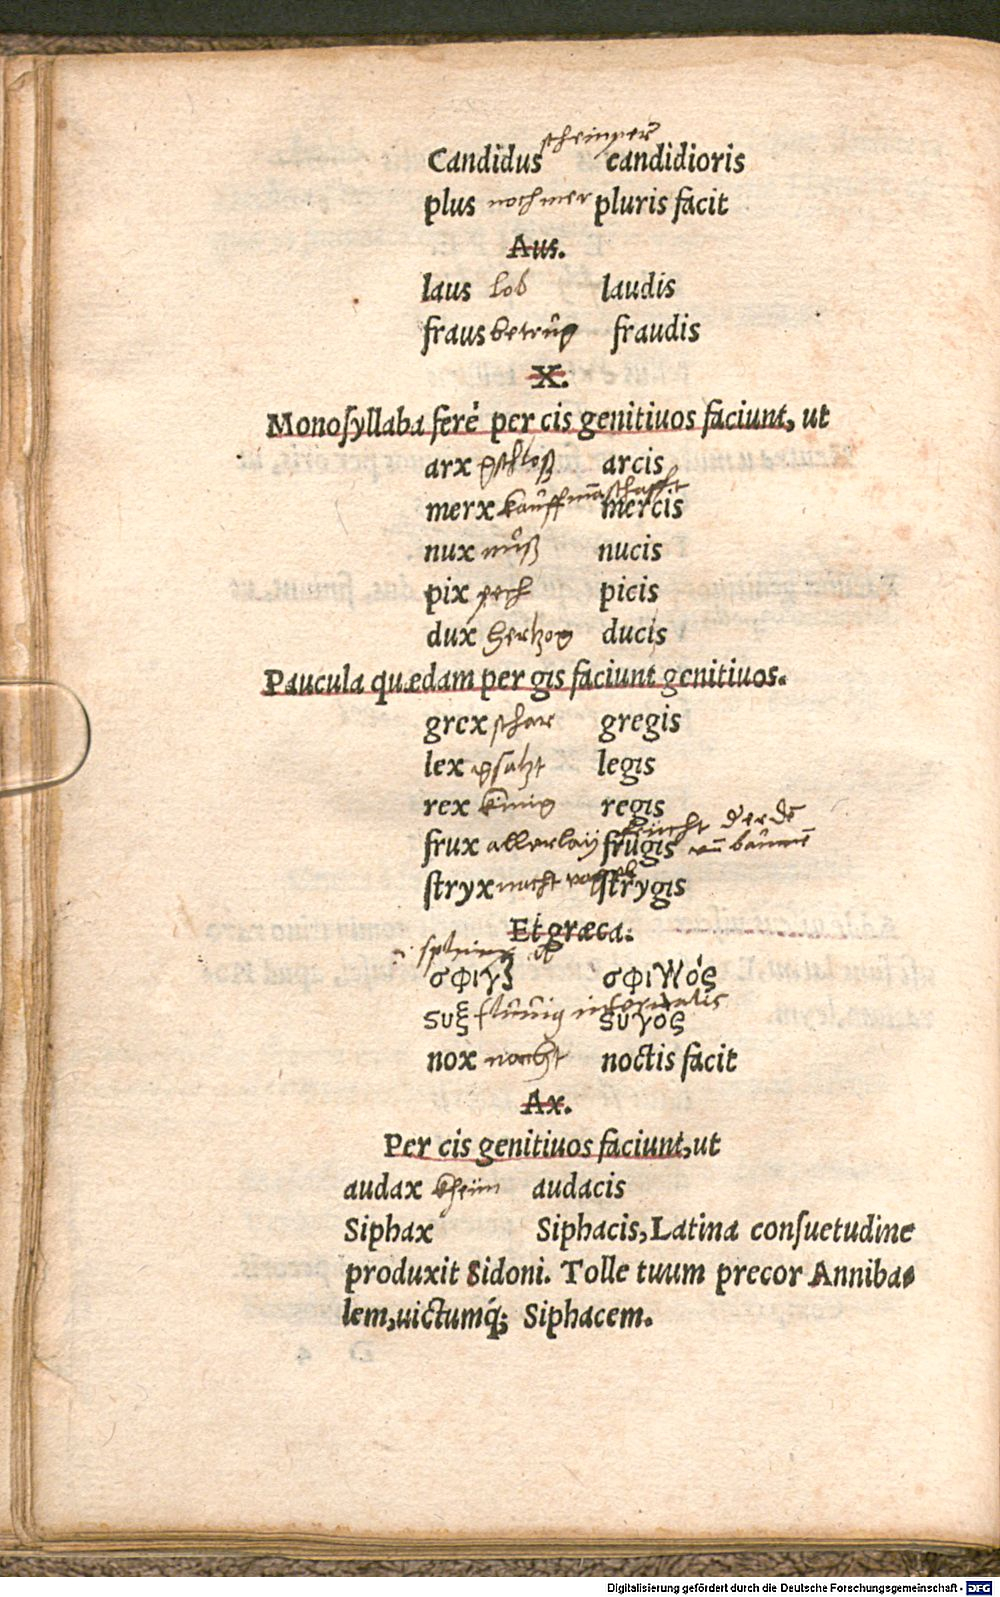 scheinper
Candidus candidioris
plus noch mer pluris facit
Aus.
laus lob laudis
fraus betrůg fraudis
X.
Monoſyllaba ferè per cis genitiuos faciunt, ut
arx gschloß arcis
merx kauffmāschafft mercis
nux nůß nucis
pix pech picis
dux hertzog ducis
Paucula quædam per gis faciunt genitiuos.
grex schar gregis
lex gsatzt legis
rex künig regis
frux allerlaÿ frugis
ſtryx nacht vogel ſtrygis
Et græca.
σφιγξ σφιγγός
ςυξ infernalis ςυγὸς
nox nacht noctis facit
Ax.
Per cis genitiuos faciunt, ut
audax audacis
Siphax Siphacis, Latina conſuetudine
produxit Sidoni. Tolle tuum precor Anniba-
lem, uictumq́; Siphacem.
Digitalisierung gefördert durch die Deutsche Forschungsgemeinschaft - DFG